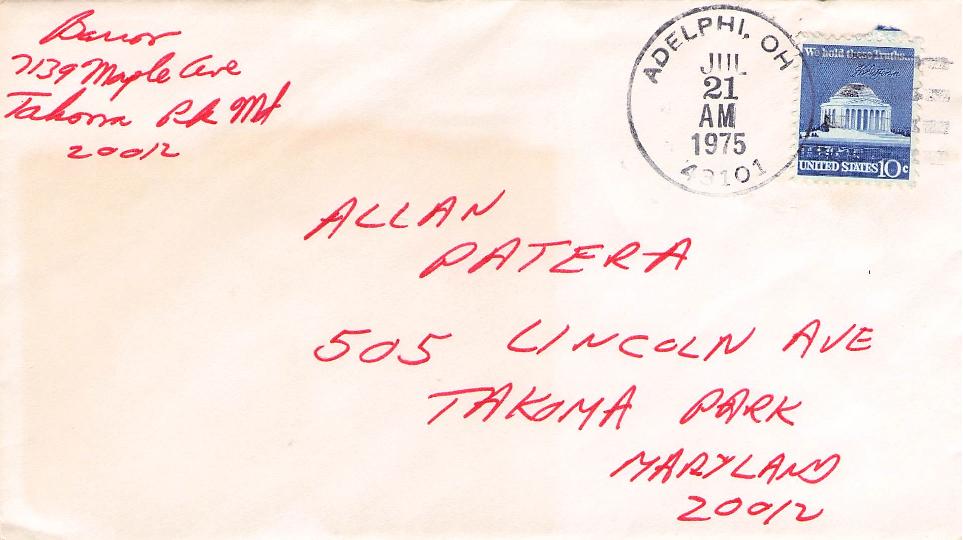 Barror
7139 Maple Ave
Takoma Pk Md
20012
ADELPHI, OH
JUL
21
AM
1975
43101
We hold these Truths...
UNITED STATES 10c
ALLAN
PATERA
505 LINCOLN AVE
TAKOMA PARK
MARYLAND
20012